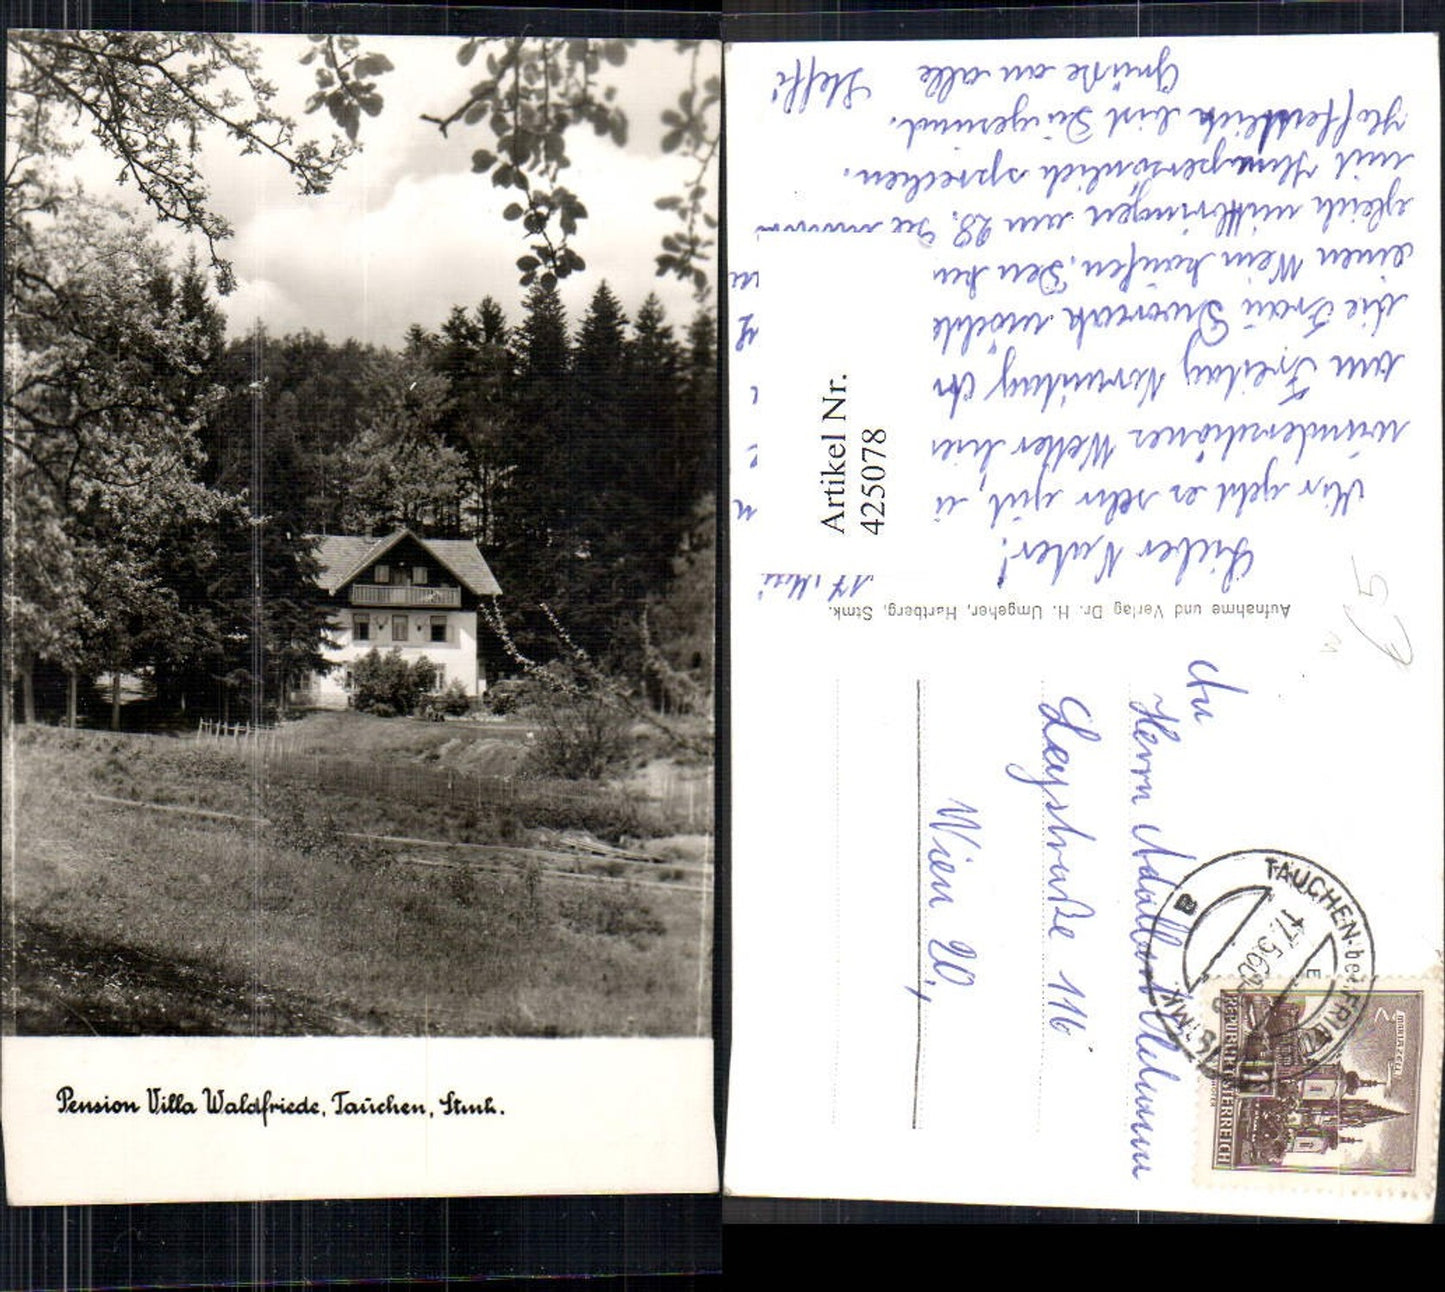 Pension Villa Waldfriede, Tauchen, Stmk.
17 Mai
Lieber Vater!
Mir geht es sehr gut,
wunderschönes Wetter hier
am Freitag Vormittag
die Frau Dworak möchte
einen Wein kaufen. Den
gleich mitbringen am 28.
mit Ihm persönlich sprechen.
Hoffentlich bist Du gesund.
Grüße an alle Steffi
Artikel Nr.
425078
Aufnahme und Verlag Dr. H. Umgeher, Hartberg, Stmk.
An
Herrn Adalbert
Leystraße 116
Wien 20,
TAUCHEN
17.5.60
STMK
REPUBLIK ÖSTERREICH
MARIAZELL
€5